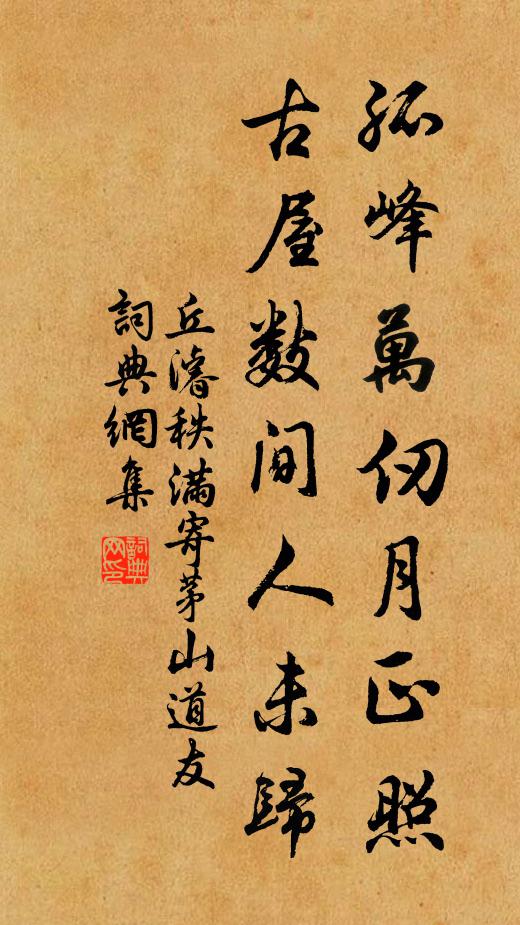 孤峰萬仞月正照
古屋数間人未歸
丘濬秩滿寄茅山道友
詞典網集
詞典网印